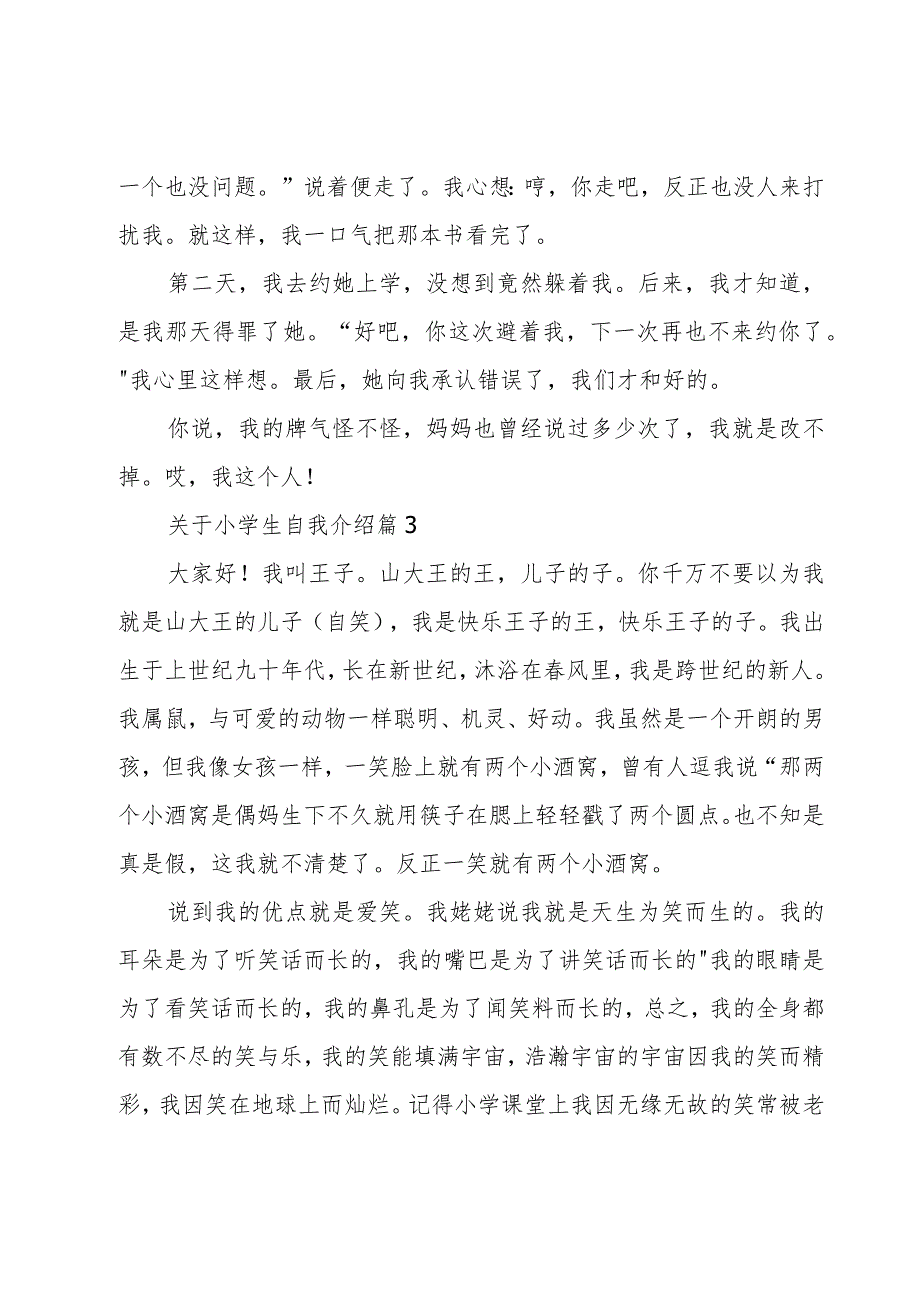 一个也没问题。”说着便走了。我心想：哼，你走吧，反正也没人来打
扰我。就这样，我一口气把那本书看完了。
第二天，我去约她上学，没想到竟然躲着我。后来，我才知道，
是我那天得罪了她。“好吧，你这次避着我，下一次再也不来约你了。
"我心里这样想。最后，她向我承认错误了，我们才和好的。
你说，我的牌气怪不怪，妈妈也曾经说过多少次了，我就是改不
掉。哎，我这个人！
关于小学生自我介绍篇3
大家好！我叫王子。山大王的王，儿子的子。你千万不要以为我
就是山大王的儿子（自笑），我是快乐王子的王，快乐王子的子。我出
生于上世纪九十年代，长在新世纪，沐浴在春风里，我是跨世纪的新人。
我属鼠，与可爱的动物一样聪明、机灵、好动。我虽然是一个开朗的男
孩，但我像女孩一样，一笑脸上就有两个小酒窝，曾有人逗我说“那两
个小酒窝是偶妈生下不久就用筷子在腮上轻轻戳了两个圆点。也不知是
真是假，这我就不清楚了。反正一笑就有两个小酒窝。
说到我的优点就是爱笑。我姥姥说我就是天生为笑而生的。我的
耳朵是为了听笑话而长的，我的嘴巴是为了讲笑话而长的"我的眼睛是
为了看笑话而长的，我的鼻孔是为了闻笑料而长的，总之，我的全身都
有数不尽的笑与乐，我的笑能填满宇宙，浩瀚宇宙的宇宙因我的笑而精
彩，我因笑在地球上而灿烂。记得小学课堂上我因无缘无故的笑常被老